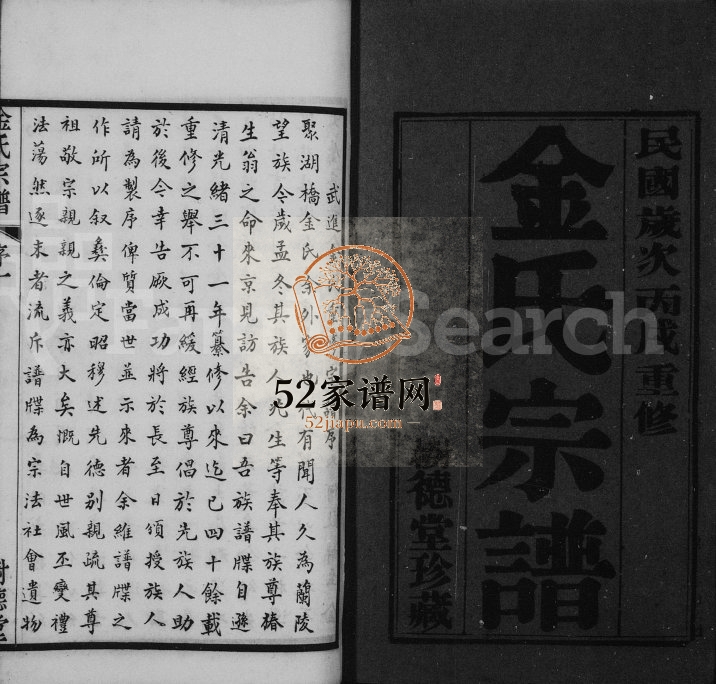 民國歲次丙戌重修
金氏宗譜
樹德堂珍藏
武進
序
聚湖橋金氏余外家也代有聞人久為蘭陵
望族今歲孟冬其族人兆生等奉其族尊椿
生翁之命來京見訪告余曰吾族譜牒自遜
清光緒三十一年纂修以來迄已四十餘載
重修之舉不可再緩經族尊倡於先族人助
於後今幸告厥成功將於長至日頒授族人
請為製序俾質當世並示來者余維譜牒之
作所以叙彝倫定昭穆述先德別親疏其尊
祖敬宗親親之義亦大矣慨自世風丕變禮
法蕩然逐末者流斥譜牒為宗法社會遺物
金氏宗譜
序一
樹德堂
Search
52家谱网
52jiapu.com